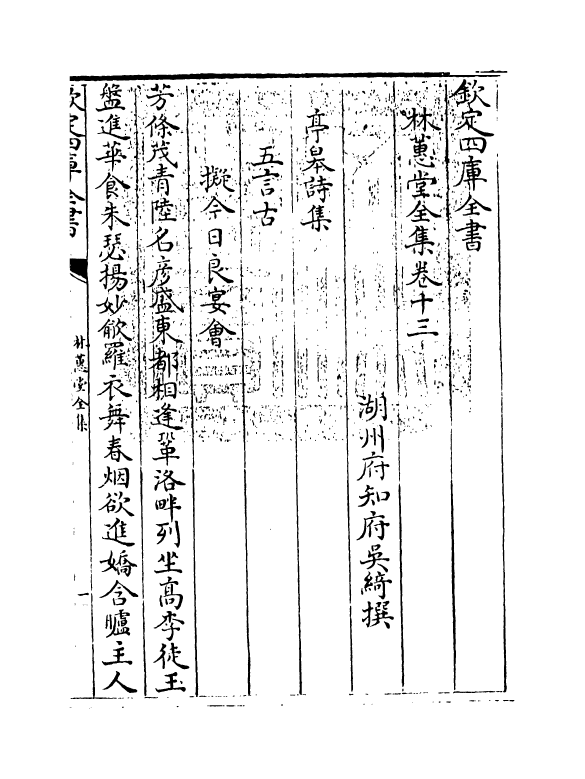 欽定四庫全書
林蕙堂全集卷十三
湖州府知府吳綺撰
亭皋詩集
五言古
擬今日良宴會
芳條茂青陸名彦盛東都相逢鞏洛畔列坐高李徒玉
盤進華食朱瑟揚妙歈羅衣舞春烟欲進嬌含臚主人
欽定四庫全書
林蕙堂全集
一